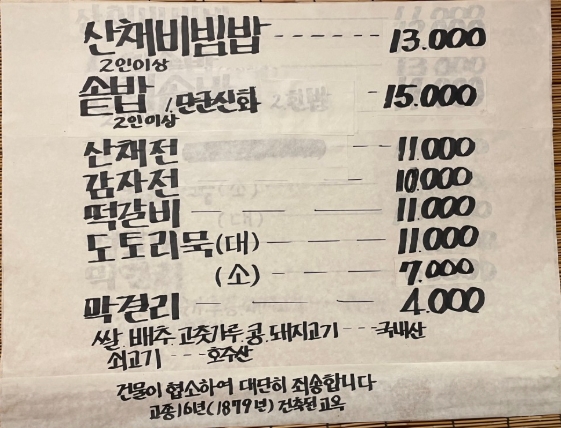 산채비빔밥 ------ 13.000
2인이상
솥밥 /단군신화 - 15.000
2인이상
산채전 --- 11.000
감자전 --- 10.000
떡갈비 --- 11.000
도토리묵(대) ---- 11.000
(소) ---- 7.000
막걸리 ----- 4.000
쌀. 배추. 고춧가루. 콩. 돼지고기 --- 국내산
쇠고기 --- 호수산
건물이 협소하여 대단히 죄송합니다
고종16년(1879년) 건축된 고옥